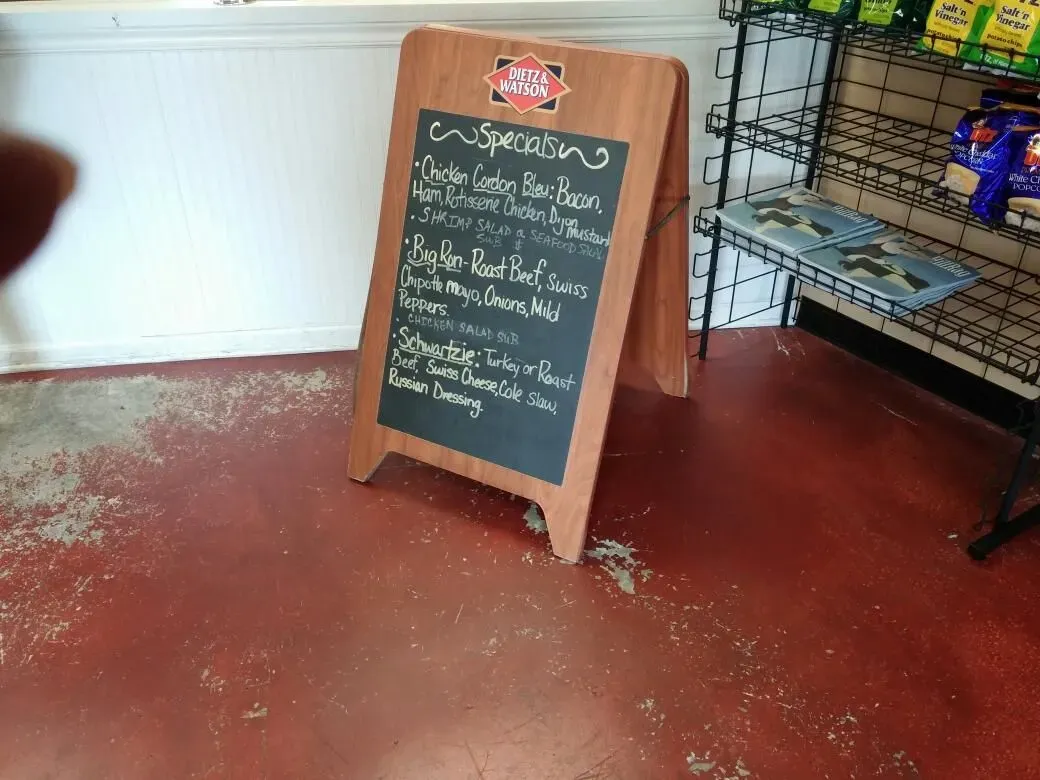 DIETZ &
WATSON
Specials
• Chicken Cordon Bleu: Bacon,
Ham, Rotisserie Chicken, Dijon Mustard
• SHRIMP SALAD & SEAFOOD SALAD
SUB $
• Big Ron - Roast Beef, Swiss
Chipotle mayo, Onions, Mild
Peppers.
• CHICKEN SALAD SUB
• Schwartzie: Turkey or Roast
Beef, Swiss Cheese, Cole Slaw,
Russian Dressing.
Salt 'n
Vinegar
potato chips
Salt 'n
Vinegar
potato chips
UTZ
White Cheddar
White Ch
POPCO